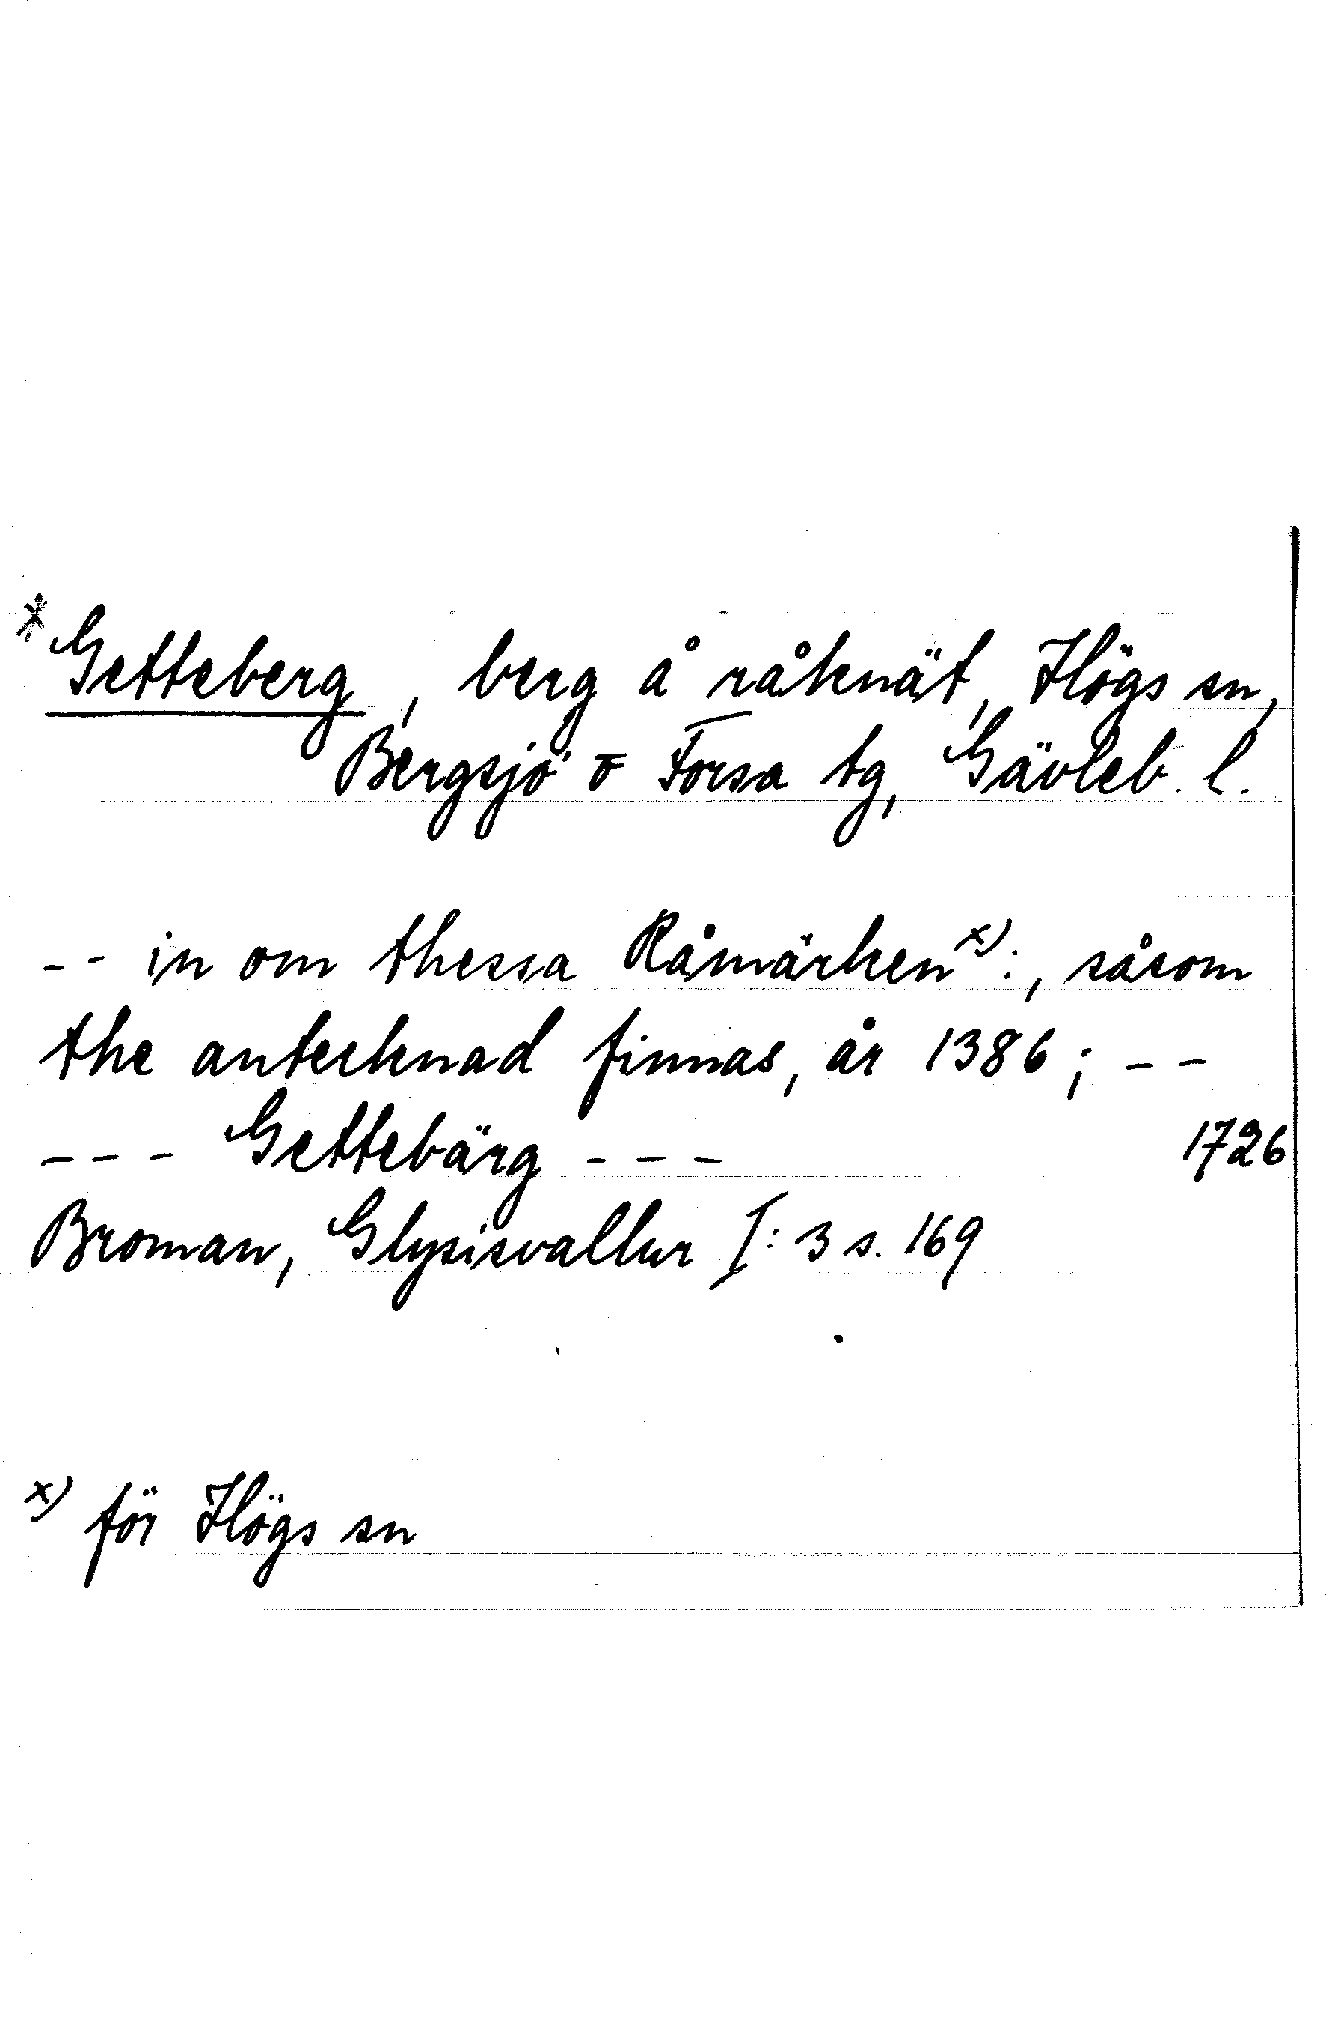 *Getteberg, berg å råknät, Högs sn,
Bergsjö o Forsa tg, Gävleb. l.
-- in om thessa Råmärken x):, såsom
the antecknad finnas, år 1386; --
--- Gettebärg --- 1726
Broman, Glysisvallur I: 3 s. 169
x) för Högs sn